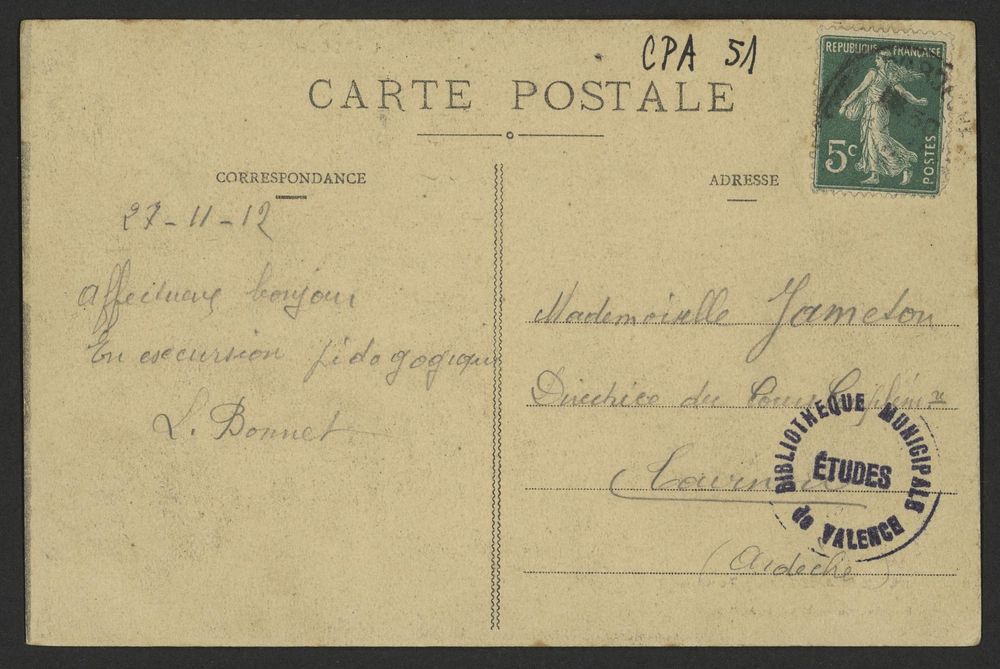 CPA 51
CARTE POSTALE
REPUBLIQUE FRANÇAISE
5c
POSTES
CORRESPONDANCE
27-11-12
Affectueux bonjour
En excursion pédagogique
L. Bonnet
ADRESSE
Mademoiselle Jameton
Directrice du Cours Complém.re
Tournon
(Ardèche)
BIBLIOTHEQUE MUNICIPALE
ÉTUDES
de VALENCE